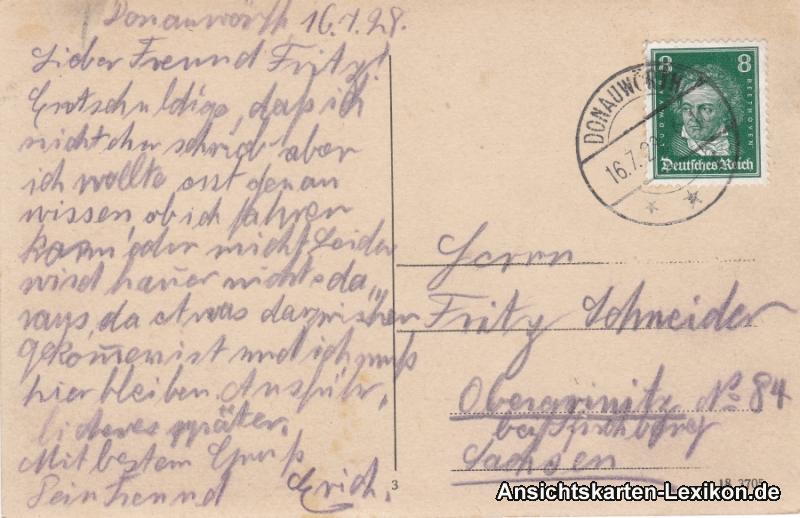 Donauwörth 16.7.28.
Lieber Freund Fritz!
Entschuldige, daß ich
nicht eher schrieb, aber
ich wollte erst genau
wissen, ob ich fahren
kann, oder nicht. Leider
wird heuer nichts da„
raus, da etwas dazwischen
gekom̄en ist und ich muß
hier bleiben. Ausführ„
licheres später.
Mit bestem Gruß
Dein Freund Erich.
8 8
LUDWIG BEETHOVEN
Deutsches Reich
DONAUWÖRTH
16.7.28
Herrn
Fritz Schneider
Obercrinitz No 84
bei Kirchberg
Sachsen
3
18 3705
Ansichtskarten-Lexikon.de